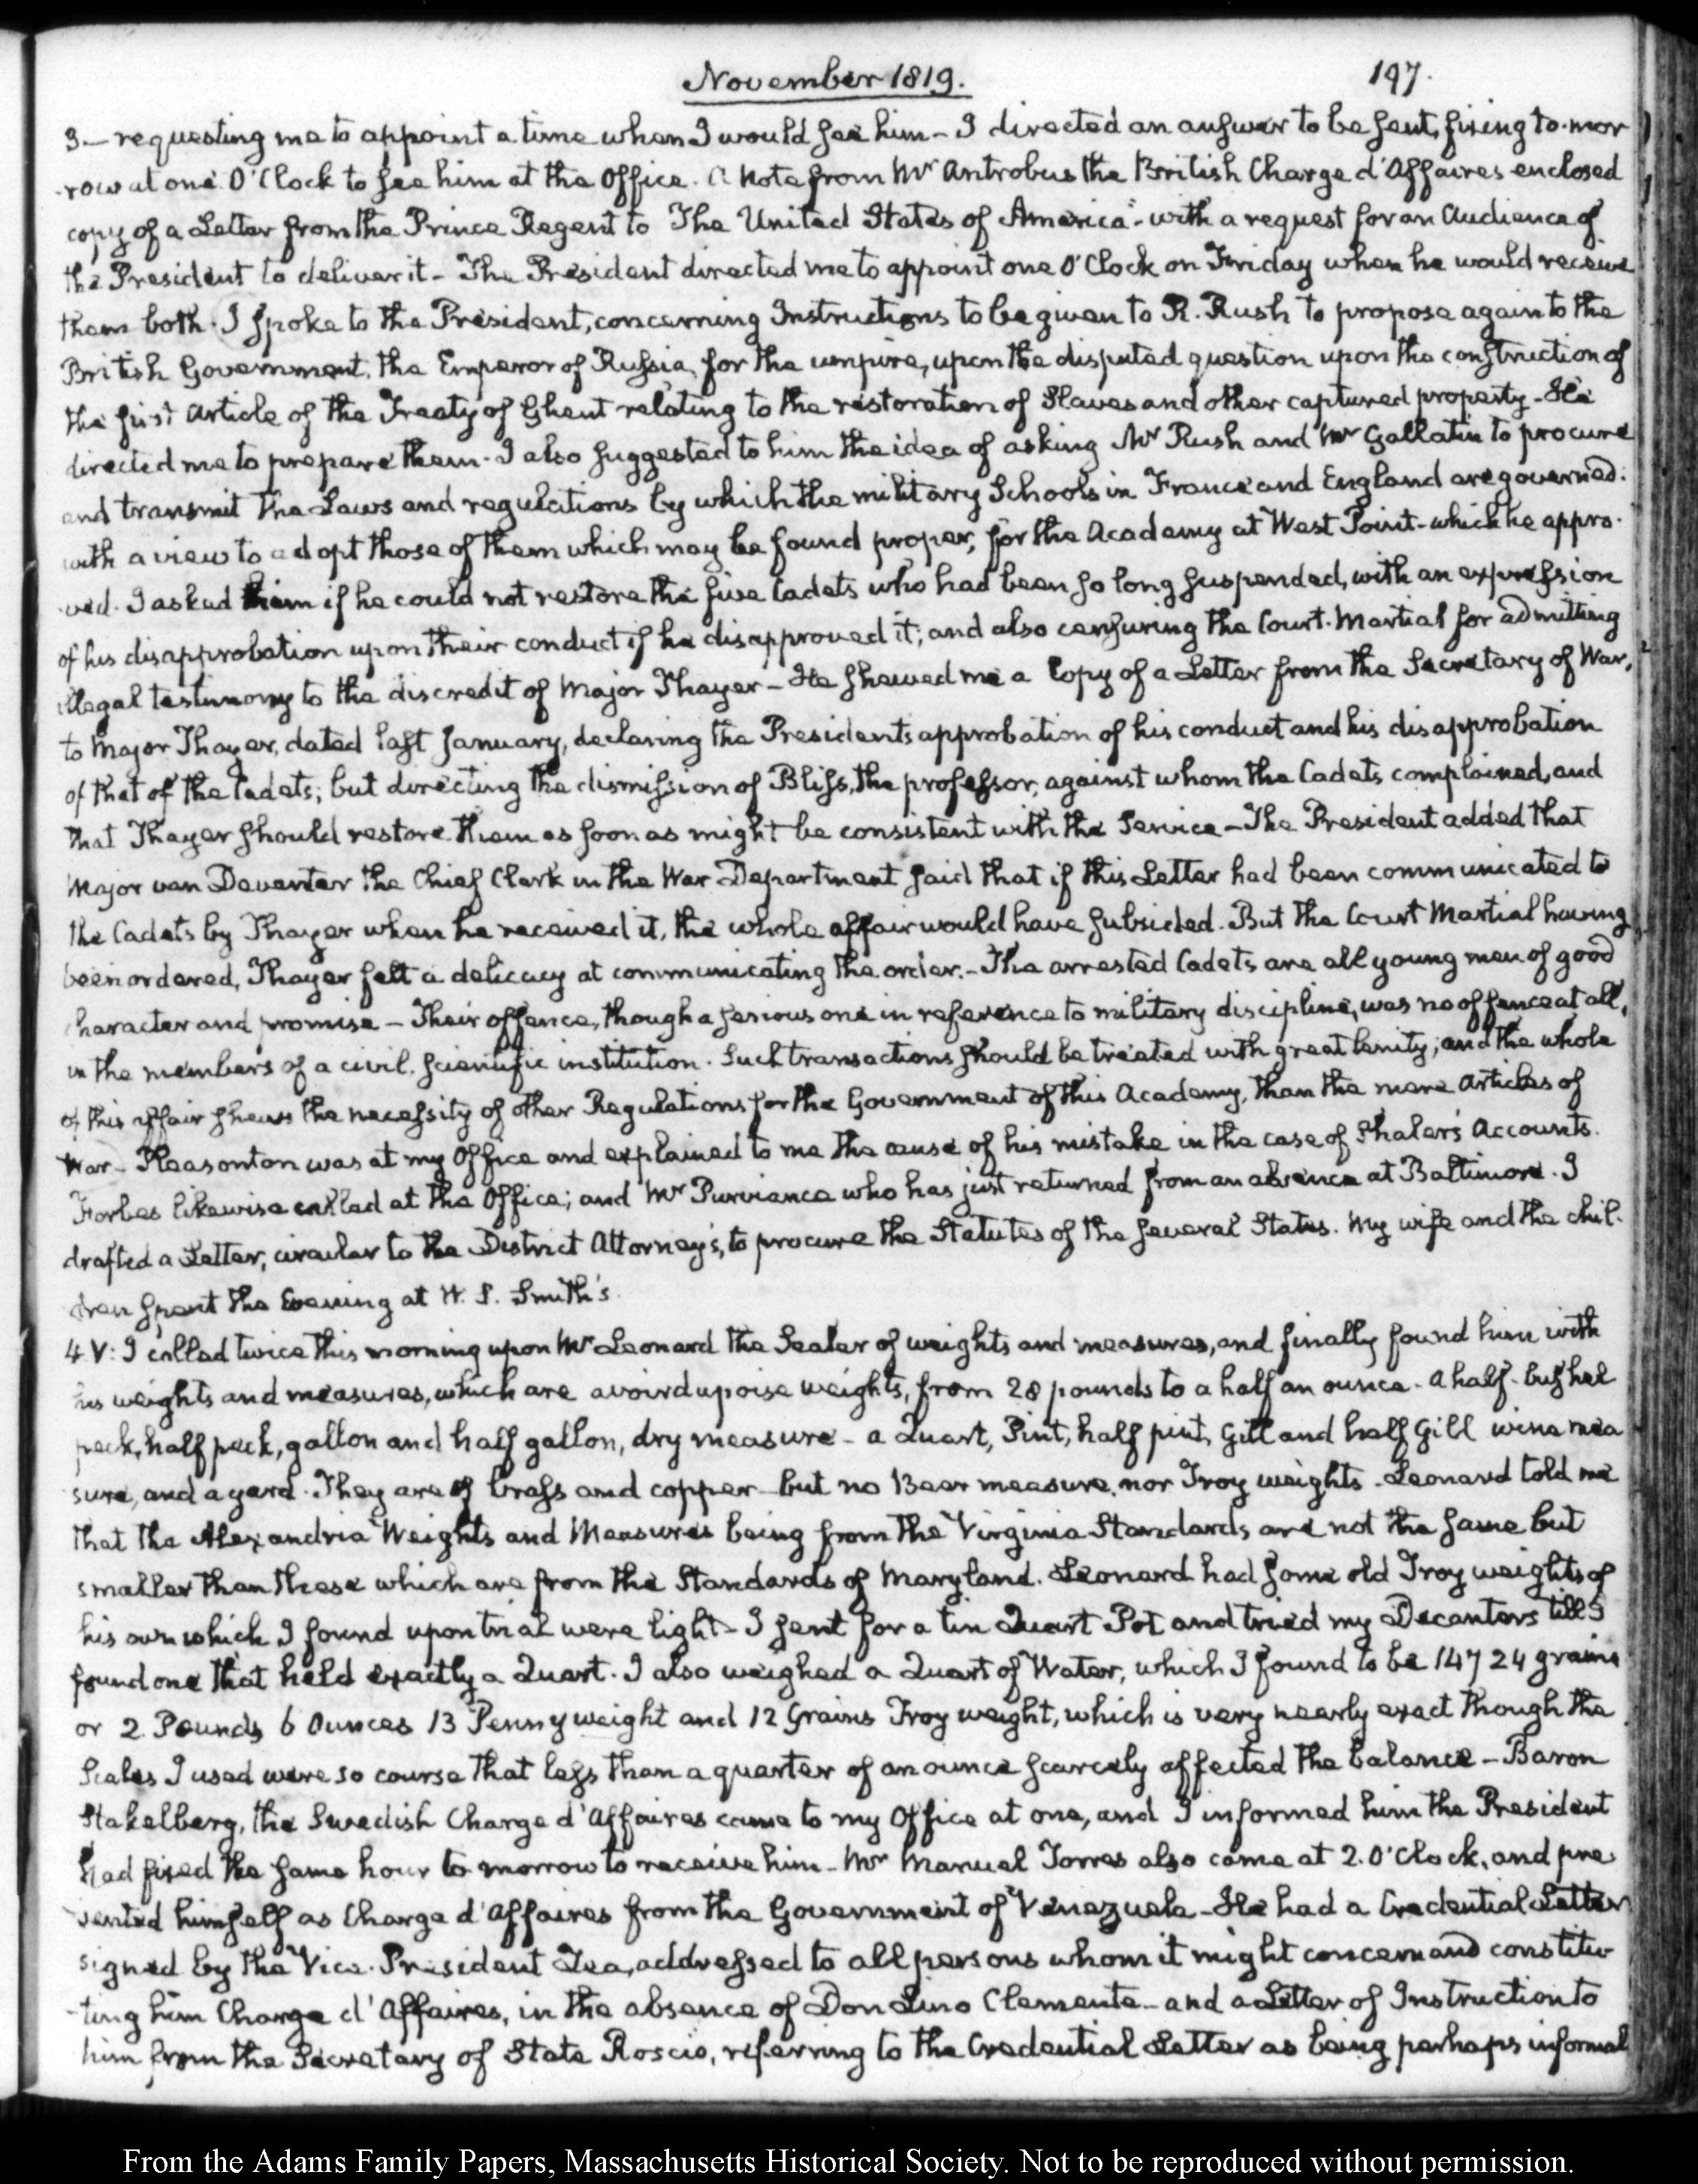 November 1819. 197.
3.— requesting me to appoint a time when I would see him — I directed an answer to be sent, fixing to-mor
-row at one O'Clock to see him at the Office. A Note from Mr Antrobus the British Charge d'Affaires enclosed
copy of a Letter from the Prince Regent to "The United States of America" - with a request for an Audience of
the President to deliver it - The President directed me to appoint one O'Clock on Friday when he would receive
them both. I spoke to the President, concerning Instructions to be given to R. Rush to propose again to the
British Government, the Emperor of Russia, for the umpire, upon the disputed question upon the construction of
the first Article of the Treaty of Ghent relating to the restoration of Slaves and other captured property - He
directed me to prepare them. I also suggested to him the idea of asking Mr Rush and Mr Gallatin to procure
and transmit the Laws and regulations by which the military Schools in France and England are governed:
with a view to adopt those of them which may be found proper, for the Academy at West Point - which he appro-
-ved. I asked him if he could not restore the five Cadets who had been so long suspended, with an expression
of his disapprobation upon their conduct if he disapproved it; and also censuring the Court-Martial for admitting
illegal testimony to the discredit of Major Thayer - He shewed me a Copy of a Letter from the Secretary of War,
to Major Thayer, dated last January, declaring the Presidents approbation of his conduct and his disapprobation
of that of the Cadets; but directing the dismission of Bliss, the professor, against whom the Cadets complained, and
that Thayer should restore them as soon as might be consistent with the Service - The President added that
Major van Deventer the Chief Clerk in the War Department said that if this Letter had been communicated to
the Cadets by Thayer when he received it, the whole affair would have subsided. But the Court Martial having
been ordered, Thayer felt a delicacy at communicating the order. - The arrested Cadets are all young men of good
character and promise - Their offence, though a serious one in reference to military discipline, was no offence at all,
in the members of a civil, scientific institution. Such transactions should be treated with great lenity; and the whole
of this affair shews the necessity of other Regulations for the Government of this Academy, than the mere Articles of
War - Pleasonton was at my Office and explained to me the cause of his mistake in the case of Shaler's Accounts.
Forbes likewise called at the Office; and Mr Purviance who has just returned from an absence at Baltimore. I
drafted a Letter, circular to the District Attorney's, to procure the Statutes of the several States. My wife and the chil-
dren spent the Evening at W. S. Smith's.
4. V: I called twice this morning upon Mr Leonard the Sealer of weights and measures, and finally found him with
his weights and measures, which are avoirdupoise weights, from 28 pounds to a half an ounce. A half-bushel
peck, half peck, gallon and half gallon, dry measure - a Quart, Pint, half pint, Gill and half Gill wine mea
sure, and a yard. They are of brass and copper - but no Beer measure, nor Troy weights. Leonard told me
that the Alexandria Weights and Measures being from the Virginia Standards are not the same but
smaller than these which are from the Standards of Maryland. Leonard had some old Troy weights of
his own which I found upon trial were light - I sent for a tin Quart Pot and tried my Decanters till I
found one that held exactly a Quart. I also weighed a Quart of Water, which I found to be 14724 grains
or 2 Pounds 6 Ounces 13 Pennyweight and 12 Grains Troy weight, which is very nearly exact though the
Scales I used were so course that less than a quarter of an ounce scarcely affected the balance - Baron
Stakelberg, the Swedish Charge d'Affaires came to my Office at one, and I informed him the President
had fixed the same hour to-morrow to receive him - Mr Manuel Torres also came at 2. O'Clock, and pre-
sented himself as Charge d'Affaires from the Government of Venezuela - He had a Credential Letter
signed by the Vice-President Zea, addressed to all persons whom it might concern and constitu-
-ting him Charge d'Affaires, in the absence of Don Lino Clemente - and a Letter of Instruction to
him from the Secretary of State Roscio, referring to the Credential Letter as being perhaps informal
From the Adams Family Papers, Massachusetts Historical Society. Not to be reproduced without permission.